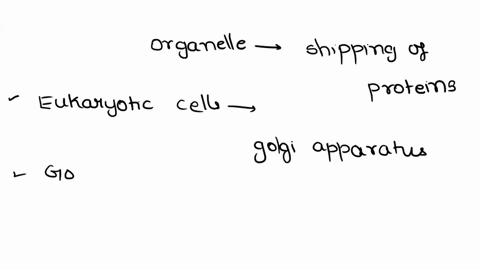 organelle → shipping of
proteins
✓ Eukaryotic cells →
golgi apparatus
✓ Go